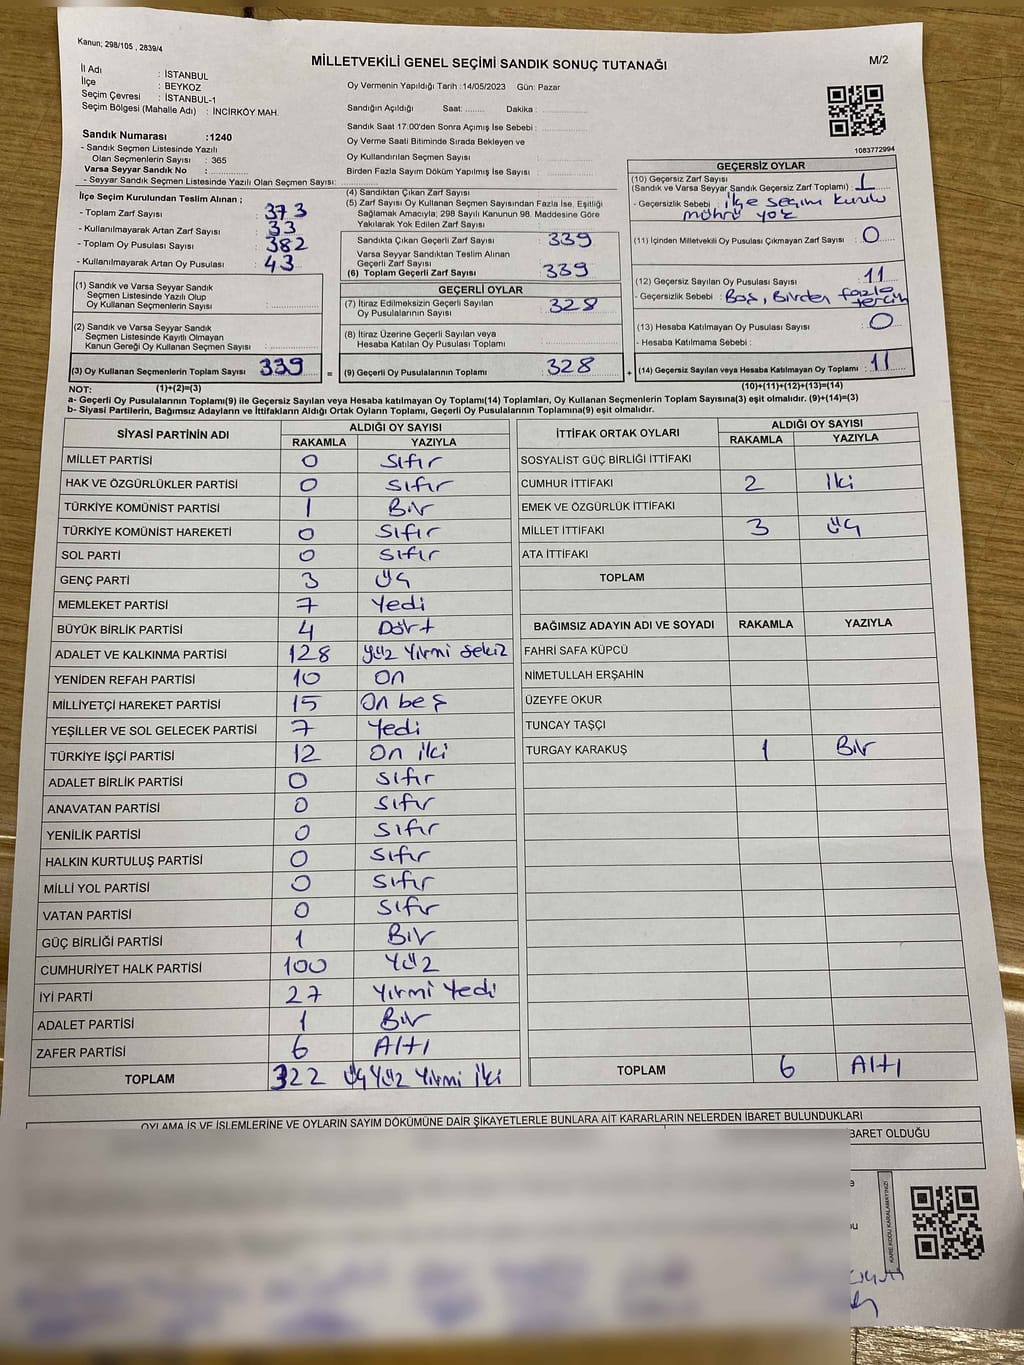 Kanun; 298/105 , 2839/4
MİLLETVEKİLİ GENEL SEÇİMİ SANDIK SONUÇ TUTANAĞI
M/2
İl Adı : İSTANBUL
İlçe : BEYKOZ
Seçim Çevresi : İSTANBUL-1
Seçim Bölgesi (Mahalle Adı) : İNCİRKÖY MAH.
Sandık Numarası :1240
- Sandık Seçmen Listesinde Yazılı
Olan Seçmenlerin Sayısı : 365
Varsa Seyyar Sandık No :
- Seyyar Sandık Seçmen Listesinde Yazılı Olan Seçmen Sayısı:
Oy Vermenin Yapıldığı Tarih :14/05/2023 Gün: Pazar
Sandığın Açıldığı Saat: ........ Dakika :
Sandık Saat 17:00'den Sonra Açımış İse Sebebi :
Oy Verme Saati Bitiminde Sırada Bekleyen ve
Oy Kullandırılan Seçmen Sayısı :
Birden Fazla Sayım Dökümü Yapılmış İse Sayısı :
1083772994
İlçe Seçim Kurulundan Teslim Alınan ;
- Toplam Zarf Sayısı : 373
- Kullanılmayarak Artan Zarf Sayısı : 33
- Toplam Oy Pusulası Sayısı : 382
- Kullanılmayarak Artan Oy Pusulası : 43
(1) Sandık ve Varsa Seyyar Sandık
Seçmen Listesinde Yazılı Olup
Oy Kullanan Seçmenlerin Sayısı :
(2) Sandık ve Varsa Seyyar Sandık
Seçmen Listesinde Kayıtlı Olmayan
Kanun Gereği Oy Kullanan Seçmen Sayısı :
(3) Oy Kullanan Seçmenlerin Toplam Sayısı : 339 =
(4) Sandıktan Çıkan Zarf Sayısı
(5) Zarf Sayısı Oy Kullanan Seçmen Sayısından Fazla İse, Eşitliği
Sağlamak Amacıyla; 298 Sayılı Kanunun 98. Maddesine Göre
Yakılarak Yok Edilen Zarf Sayısı :
Sandıkta Çıkan Geçerli Zarf Sayısı : 339
Varsa Seyyar Sandıktan Teslim Alınan
Geçerli Zarf Sayısı :
(6) Toplam Geçerli Zarf Sayısı : 339
GEÇERLİ OYLAR
(7) İtiraz Edilmeksizin Geçerli Sayılan
Oy Pusulalarının Sayısı : 328
(8) İtiraz Üzerine Geçerli Sayılan veya
Hesaba Katılan Oy Pusulası Toplamı :
(9) Geçerli Oy Pusulalarının Toplamı : 328 +
GEÇERSİZ OYLAR
(10) Geçersiz Zarf Sayısı
(Sandık ve Varsa Seyyar Sandık Geçersiz Zarf Toplamı) : 1
- Geçersizlik Sebebi : ilçe seçim kurulu
möhrü yok
(11) İçinden Milletvekili Oy Pusulası Çıkmayan Zarf Sayısı : 0
(12) Geçersiz Sayılan Oy Pusulası Sayısı : 11
- Geçersizlik Sebebi : Boş, Birden fazla
tercih
(13) Hesaba Katılmayan Oy Pusulası Sayısı : 0
- Hesaba Katılmama Sebebi :
(14) Geçersiz Sayılan veya Hesaba Katılmayan Oy Toplamı : 11
NOT: (1)+(2)=(3) (10)+(11)+(12)+(13)=(14)
a- Geçerli Oy Pusulalarının Toplamı(9) ile Geçersiz Sayılan veya Hesaba katılmayan Oy Toplamı(14) Toplamları, Oy Kullanan Seçmenlerin Toplam Sayısına(3) eşit olmalıdır. (9)+(14)=(3)
b- Siyasi Partilerin, Bağımsız Adayların ve İttifakların Aldığı Ortak Oyların Toplamı, Geçerli Oy Pusulalarının Toplamına(9) eşit olmalıdır.
SİYASİ PARTİNİN ADI ALDIĞI OY SAYISI
RAKAMLA YAZIYLA
MİLLET PARTİSİ 0 Sıfır
HAK VE ÖZGÜRLÜKLER PARTİSİ 0 Sıfır
TÜRKİYE KOMÜNİST PARTİSİ 1 Bir
TÜRKİYE KOMÜNİST HAREKETİ 0 Sıfır
SOL PARTİ 0 Sıfır
GENÇ PARTİ 3 Üç
MEMLEKET PARTİSİ 7 Yedi
BÜYÜK BİRLİK PARTİSİ 4 Dört
ADALET VE KALKINMA PARTİSİ 128 Yüz Yirmi Sekiz
YENİDEN REFAH PARTİSİ 10 On
MİLLİYETÇİ HAREKET PARTİSİ 15 On beş
YEŞİLLER VE SOL GELECEK PARTİSİ 7 Yedi
TÜRKİYE İŞÇİ PARTİSİ 12 On iki
ADALET BİRLİK PARTİSİ 0 Sıfır
ANAVATAN PARTİSİ 0 Sıfır
YENİLİK PARTİSİ 0 Sıfır
HALKIN KURTULUŞ PARTİSİ 0 Sıfır
MİLLİ YOL PARTİSİ 0 Sıfır
VATAN PARTİSİ 0 Sıfır
GÜÇ BİRLİĞİ PARTİSİ 1 Bir
CUMHURİYET HALK PARTİSİ 100 Yüz
İYİ PARTİ 27 Yirmi Yedi
ADALET PARTİSİ 1 Bir
ZAFER PARTİSİ 6 Altı
TOPLAM 322 Üç Yüz Yirmi iki
İTTİFAK ORTAK OYLARI ALDIĞI OY SAYISI
RAKAMLA YAZIYLA
SOSYALİST GÜÇ BİRLİĞİ İTTİFAKI
CUMHUR İTTİFAKI 2 İki
EMEK VE ÖZGÜRLÜK İTTİFAKI
MİLLET İTTİFAKI 3 Üç
ATA İTTİFAKI
TOPLAM
BAĞIMSIZ ADAYIN ADI VE SOYADI RAKAMLA YAZIYLA
FAHRİ SAFA KÜPCÜ
NİMETULLAH ERŞAHİN
ÜZEYFE OKUR
TUNCAY TAŞÇI
TURGAY KARAKUŞ 1 Bir
TOPLAM 6 Altı
OYLAMA İŞ VE İŞLEMLERİNE VE OYLARIN SAYIM DÖKÜMÜNE DAİR ŞİKAYETLERLE BUNLARA AİT KARARLARIN NELERDEN İBARET BULUNDUKLARI
BARET OLDUĞU
KARE KODU KARALAMAYINIZ!